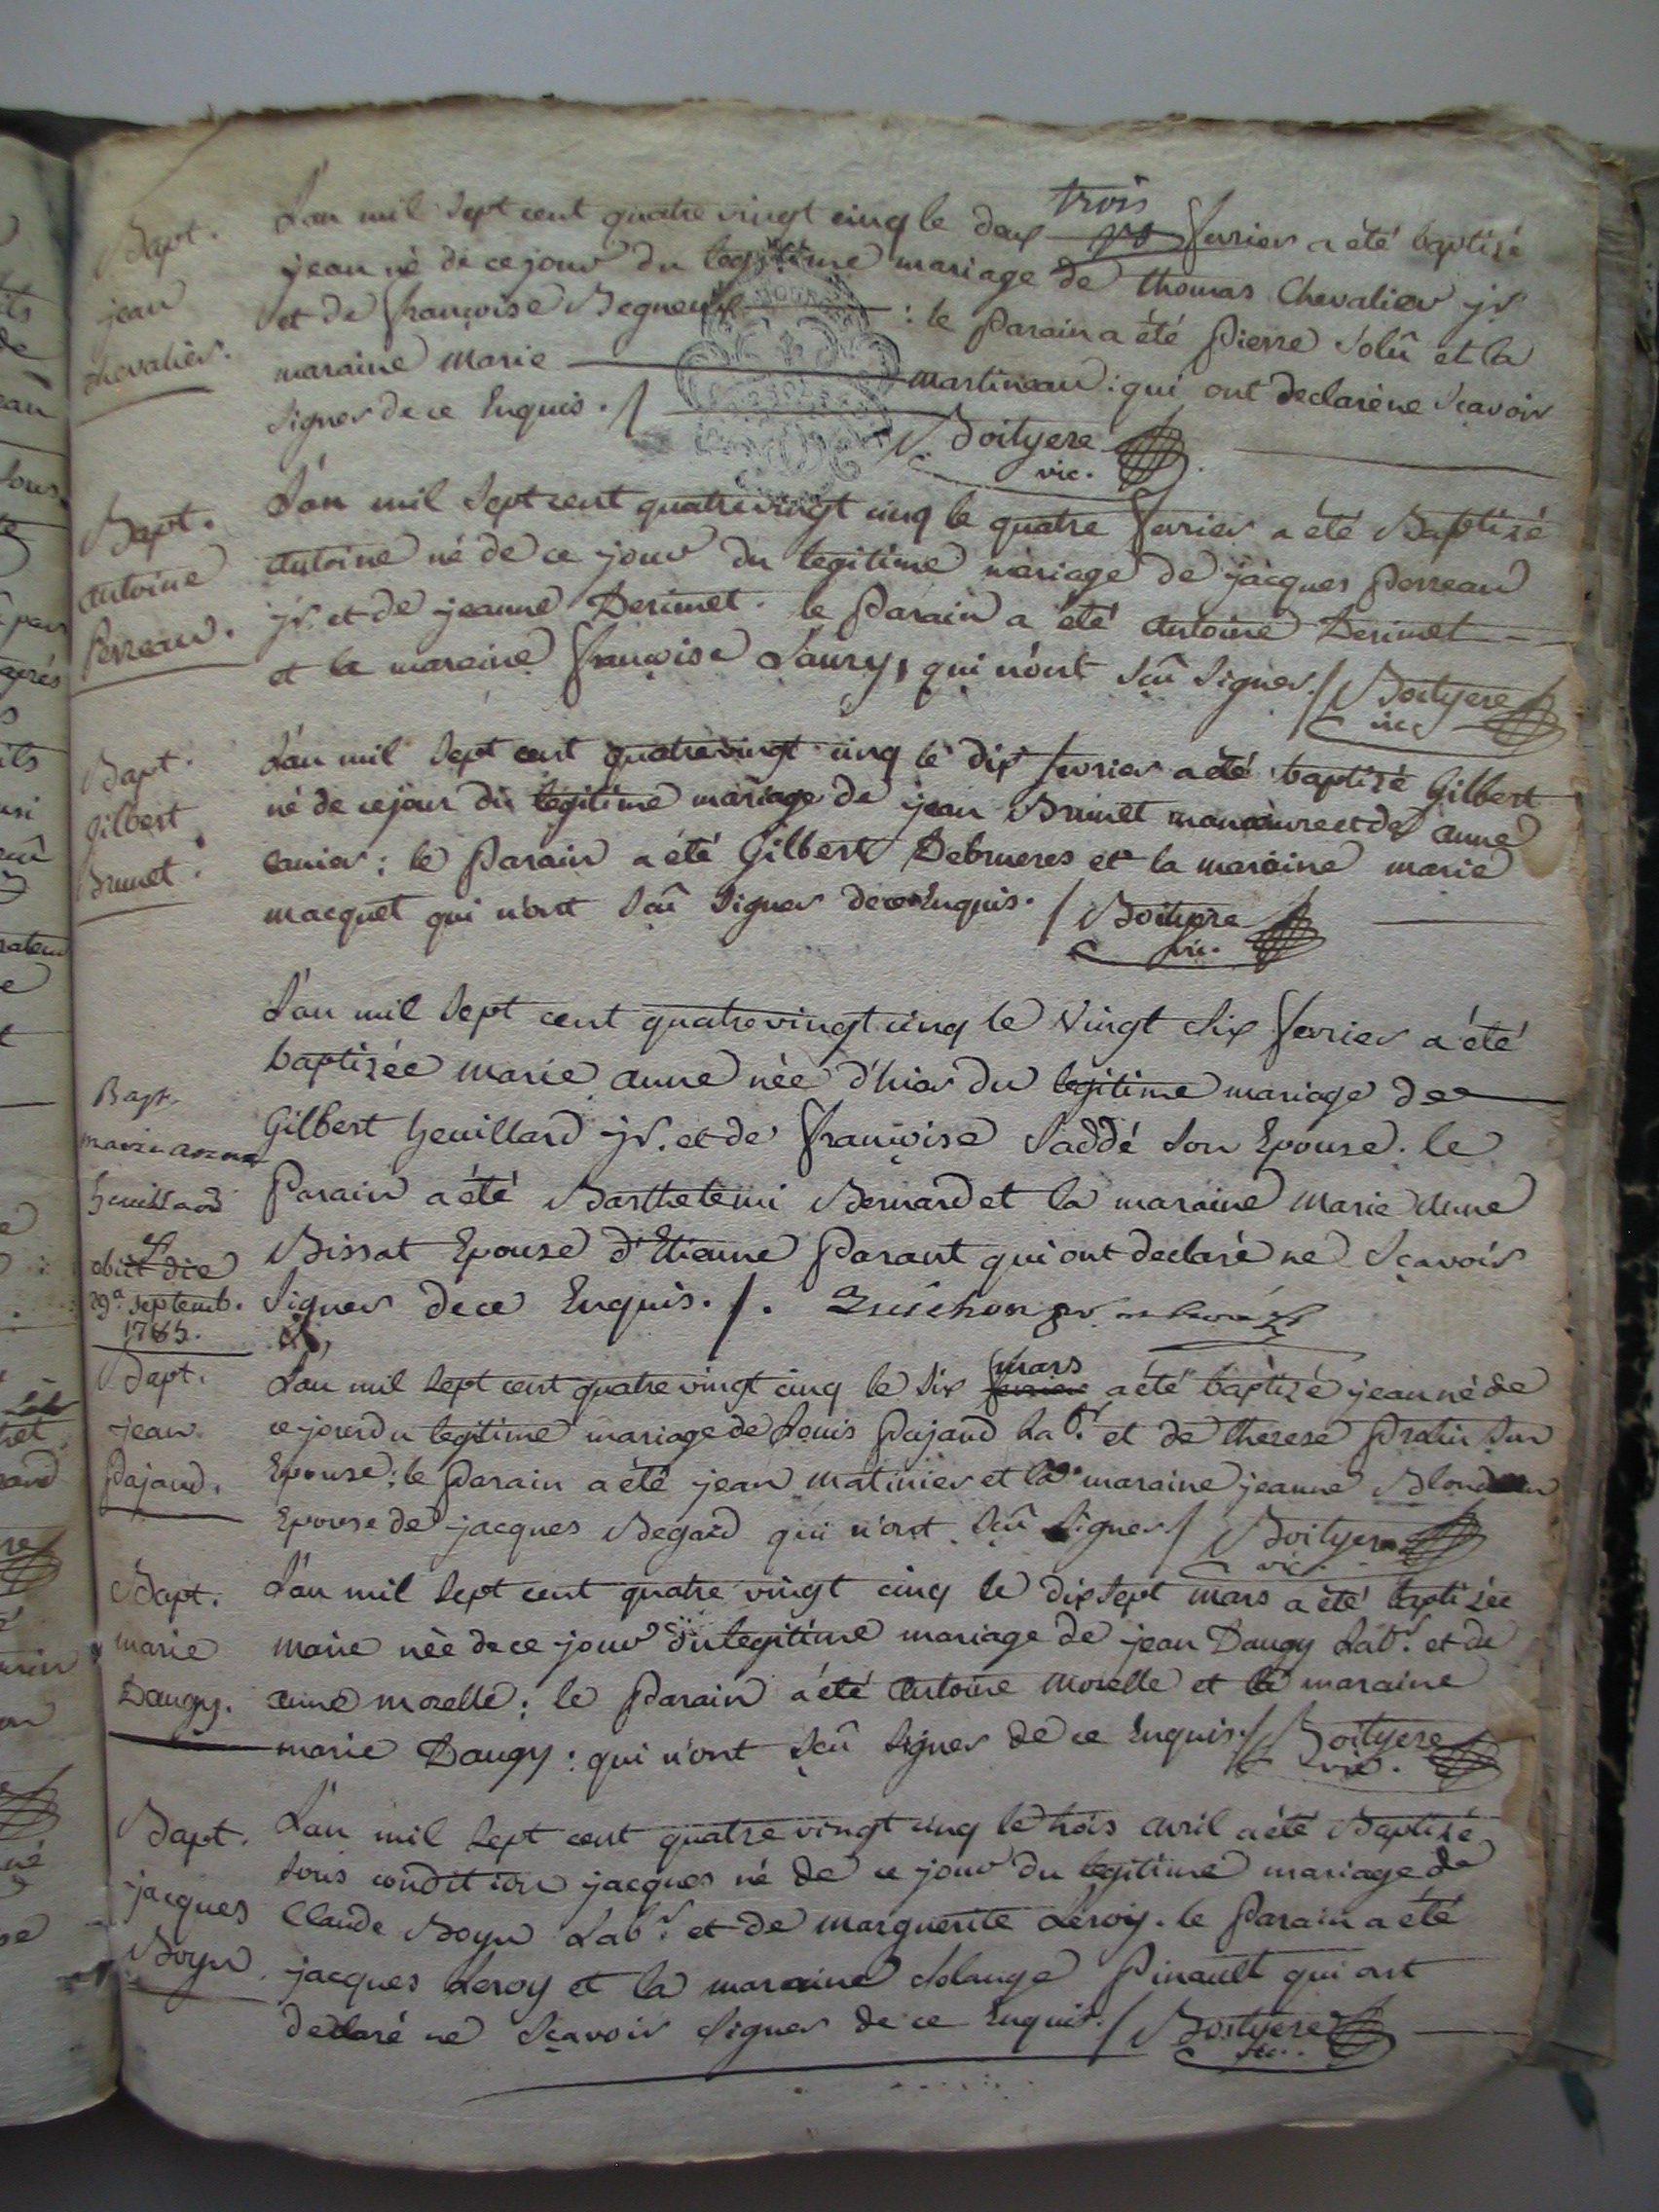 Bapt.
jean
chevalier.
L'an mil sept cent quatre vingt cinq le deux trois fevrier a été baptisé
jean né de ce jour du legitime mariage de thomas Chevalier jr.
et de françoise Begneux : le Parain a été Pierre Solû et la
maraine Marie martineau : qui ont declaré ne scavoir
signer de ce Enquis. /
Boityere
vic.
Bapt.
antoine
Perreau.
L'an mil sept cent quatre vingt cinq le quatre fevrier a été Baptisé
antoine né de ce jour du legitime mariage de jacques Perreau
jr. et de jeanne Derimet. le Parain a été antoine Derimet
et la maraine françoise Laury, qui n'ont sçû signer. / Boityere
vic
Bapt.
Gilbert
Brunet.
L'an mil sept cent quatrevingt cinq le dix fevrier a été baptisé Gilbert
né de ce jour du legitime mariage de jean Brunet manoeuvre et de anne
lanier : le Parain a été Gilbert Debrueres et la maraine marie
macquet qui n'ont sçû signer de ce Enquis. / Boityere
vic.
Bapt.
marie anne
heuillard
obiit die
29a. septemb.
1785.
L'an mil sept cent quatrevingt cinq le vingt six fevrier a été
baptisée marie anne née d'hier du legitime mariage de
Gilbert heuillard jr. et de françoise Saddé son Epouse. le
Parain a été Barthelemi Bernard et la maraine Marie Anne
Bissat Epouse d'Etienne Parant qui ont declaré ne Sçavoir
signer de ce Enquis. /.
Bapt.
jean
Pajaud.
L'an mil sept cent quatre vingt cinq le six fevrier mars a été baptizé jean né de
ce jour du legitime mariage de Louis Pajaud Labr. et de therese Pratin son
Epouse : le Parain a été jean matinier et la maraine jeanne
Epouse de jacques Begard qui n'ont sçû signer / Boityere
vic.
Bapt.
marie
Daugy.
L'an mil sept cent quatre vingt cinq le dix sept mars a été baptisée
marie née de ce jour du legitime mariage de jean Daugy Labr. et de
anne morelle : le Parain a été antoine Morelle et la maraine
marie Daugy : qui n'ont sçû signer de ce Enquis. / Boityere
vic.
Bapt.
jacques
Boyn
L'an mil sept cent quatre vingt cinq le trois avril a été Baptisé
sous condition jacques né de ce jour du legitime mariage de
Claude Boyn Labr. et de marguerite Leroy. le Parain a été
jacques Leroy et la maraine Solange Pinault qui ont
declaré ne Sçavoir signer de ce Enquis. / Boityere
vic.